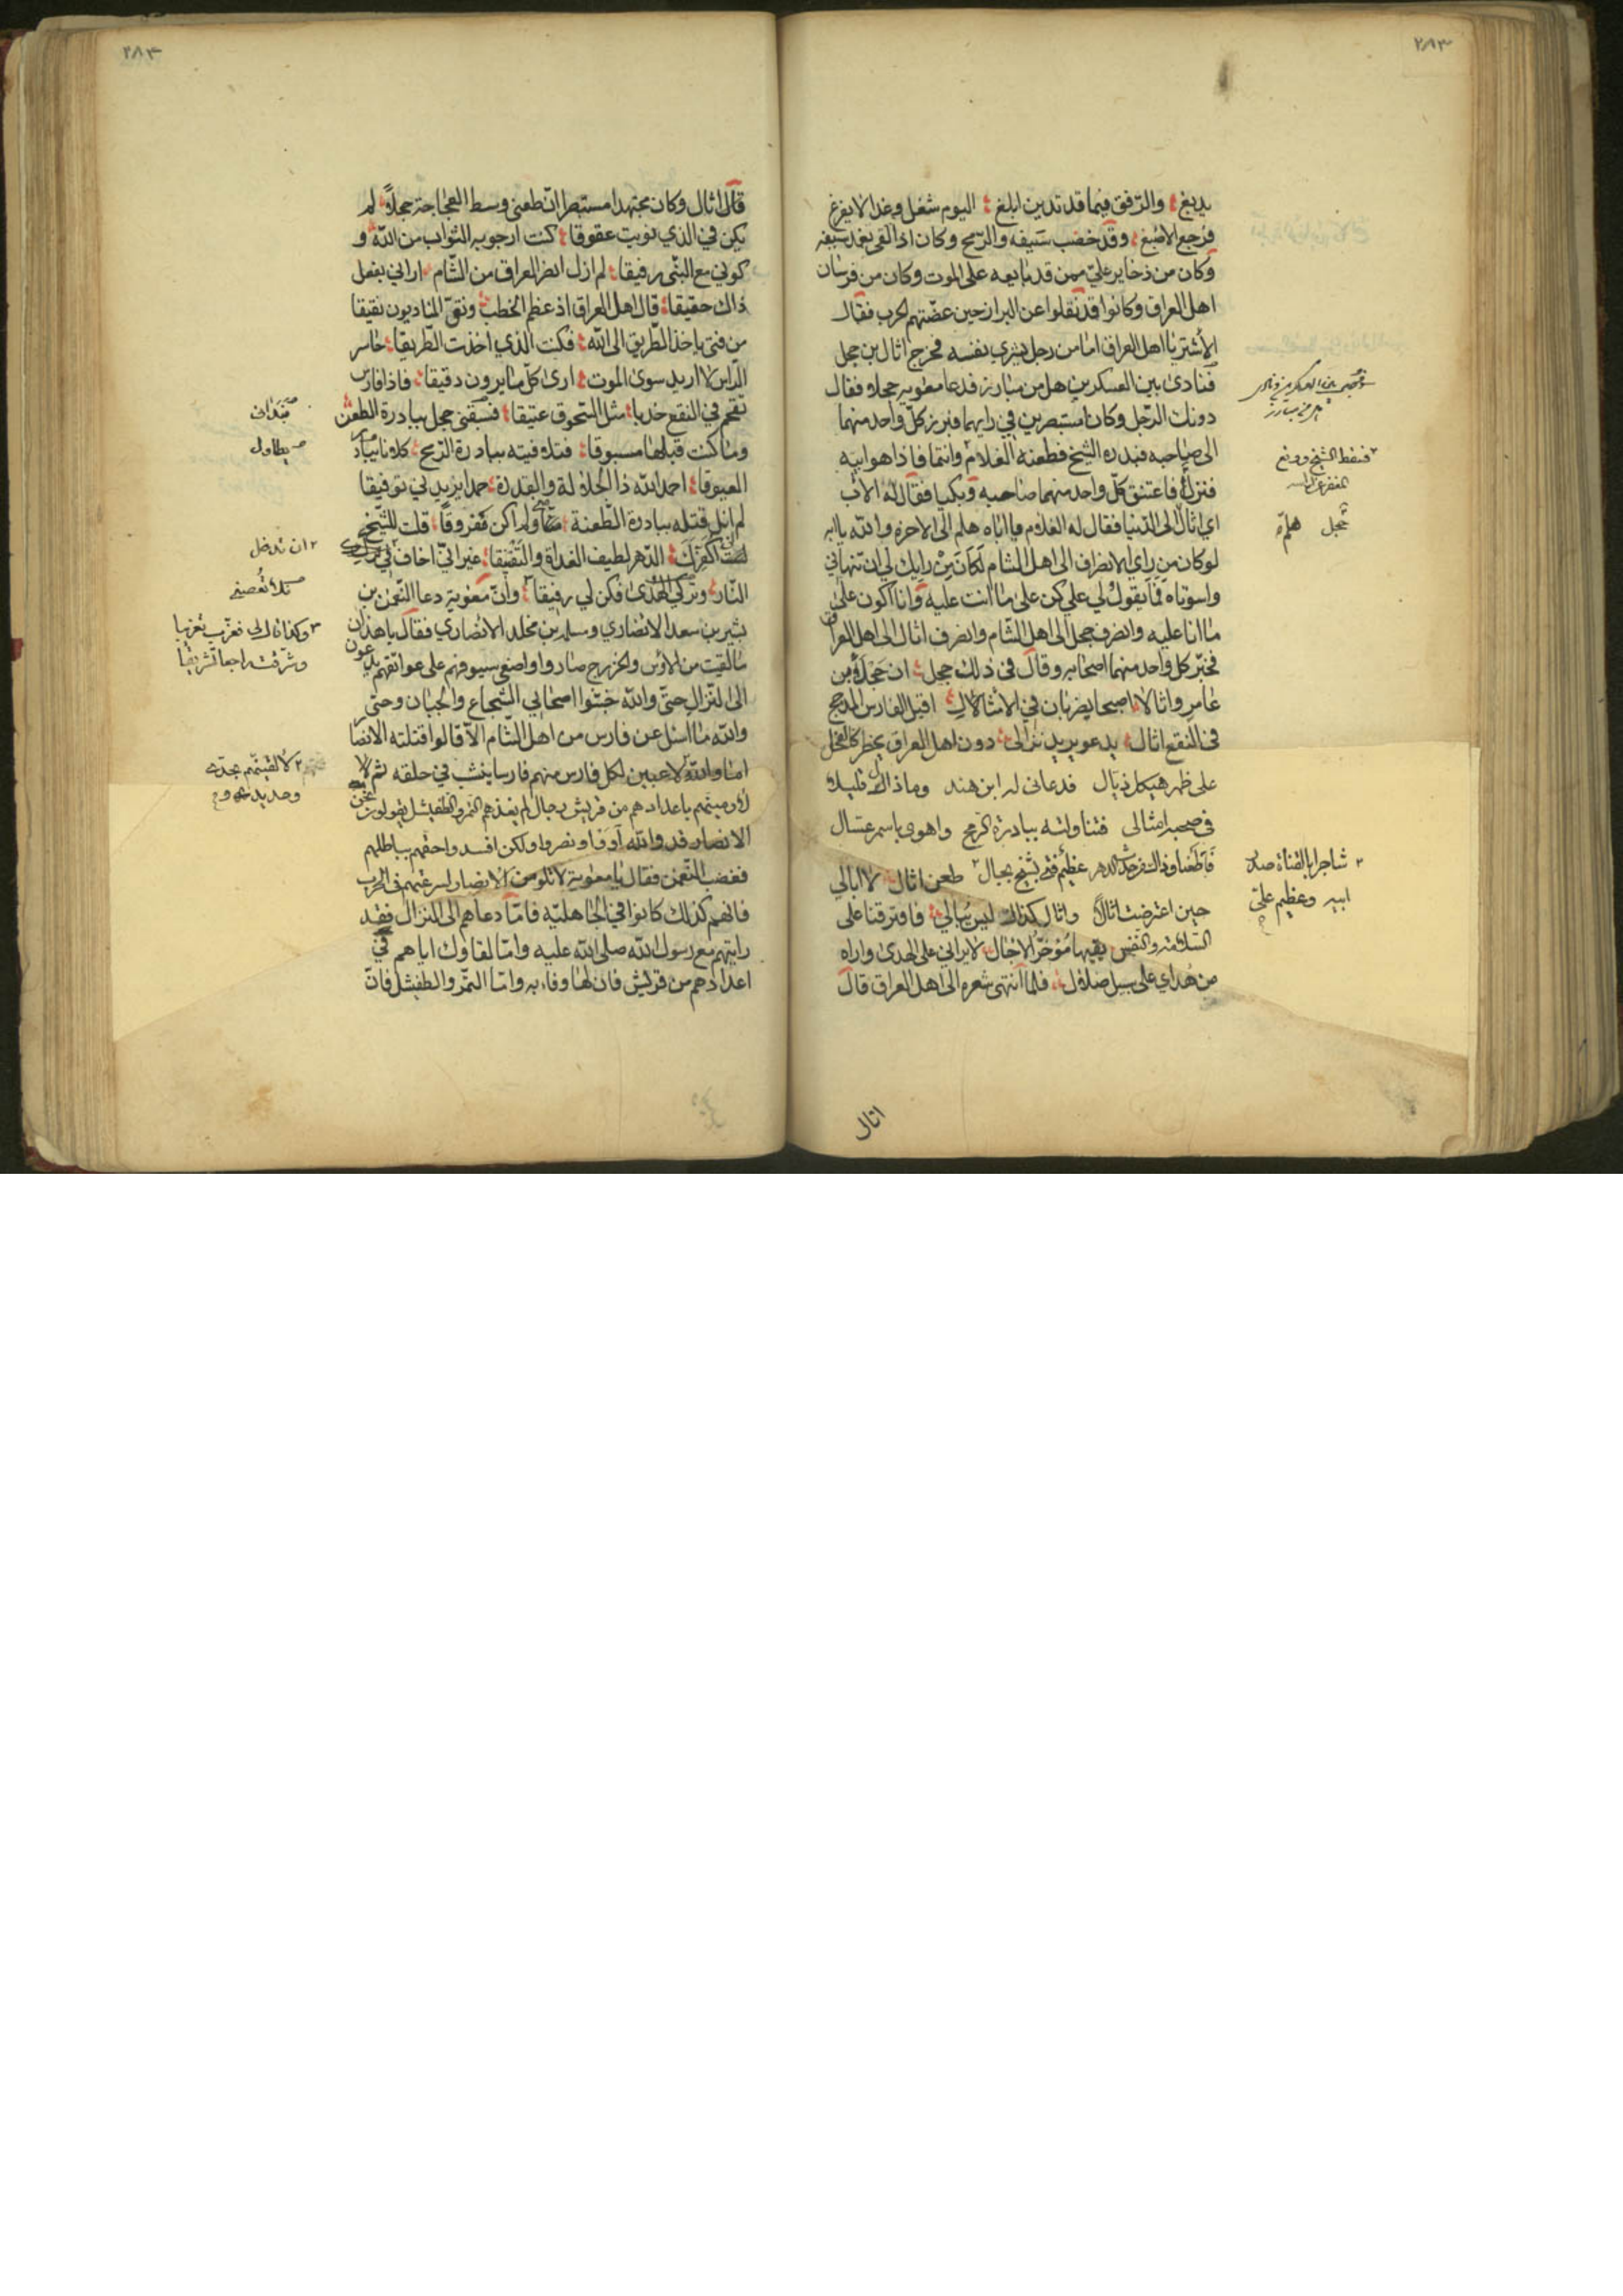 ٢٨٣
يدبغ والرفق فيما قد تدين ابلغ اليوم شغل وغدا لا يفرغ
فرجع الاصبغ وقد خضب سيفه والرمح وكان اذا لقي بغمد سيفه
وكان من ذخاير علي ممن قد بايعه على الموت وكان من فرسان
اهل العراق وكانوا قد ثقلوا عن البراز حين عضتهم الحرب فقال
الأشتر يا اهل العراق اما من رجل يشري نفسه فخرج اثال بن حجل
فنادى بين العسكرين هل من مبارز فدعا معوية حجلا وفقال
دونك الرجل وكانا مستبصرين في رايهما فبرز كل واحد منهما
الى صاحبه فبدره الشيخ فطعنه الغلام وانتما فاذا هو ابيه
فنزلا فاعتنق كل واحد منهما صاحبه وبكيا فقال له الاب
اي اثال الى الدنيا فقال له الغلام يا اباه هلم الى الاخره والله يا ابه
لو كان من راي الانصراف الى اهل الشام لكان من رايك لي ان تنهاني
واسوتاه فما يقول لي علي كن على ما انت عليه وانا اكون على
ما انا عليه وانصرف حجل الى اهل الشام وانصرف اثال الى اهل العراق
فخبر كل واحد منهما اصحابه وقال في ذلك حجل ان حجلا من
عامر واثالا اصبحا يضربان في الامثال اقبل الفارس المدجج
في النقع اثال يدعو يريد نزالي دون اهل العراق يخطر كالفحل
على ظهر هيكل ذيال فدعاني له ابن هند وما ذاك قليلا
في صحبه امثالي فتناولته ببادرة الرمح واهوى باسمر عسال
فاطعنا وذاك من حدث الدهر عظيم فتى بشيخ بجال طعن اثال لا ابالي
حين اعترضت اثالا واثال كذاك ليس يبالي فافترقنا على
السلامة والنفس يقيها مؤخر الاجال لا يراني على الهدى واراه
من هداي على سبيل ضلال فلما انتهى شعره الى اهل العراق قال
فسقط الشيخ ووقع
حجل هلم
شاجرا بالقناة صدر
ابيه وعظيم علي
اثال
٢٨٤
قال اثال وكان مجتهدا مستبصرا ان طعني وسط العجاجة حجلا لم
يكن في الذي نويت عقوقا كنت ارجو به الثواب من الله و
كوني مع النبي رفيقا لم ازل انصر العراق من الشام اراني بفعل
ذاك حقيقا قال اهل العراق اذ عظم الخطب ونق المناديون نقيقا
من فتى ياخذ الطريق الى الله فكنت الذي اخذت الطريقا حاسر
الراس لا اريد سوى الموت ارى كل ما يرون دقيقا فاذا فارس
تقحم في النقع خدبا مثل السحوق عتيقا فسبقني حجل ببادرة الطعن
وما كنت قبلها مسبوقا فتلافيته ببادرة الرمح كلانا يبادر
العيوقا احمد الله ذا الجلالة والقدرة حمدا يزيدني توفيقا
لم انل قتله ببادرة الطعنة مني ولم اكن مفروقا قلت للشيخ
لست اكفرك الدهر لطيف الغداة والتفنيقا غير اني اخاف
النار وتركي الهدى فكن لي رفيقا وان معوية دعا النعمن بن
بشير بن سعد الانصاري وسلمه بن مخلد الانصاري فقال يا هذان
ما لقيت من الاوس والخزرج صاروا واضعي سيوفهم على عواتقهم يدعون
الى النزال حتى والله جبنوا اصحابي الشجاع والجبان وحتى
والله ما اسئل عن فارس من اهل الشام الا قالوا قتلته الانصار
اما والله لاعبين لكل فارس منهم فارسا ينشب في حلقه ثم لا
لارمينهم باعدادهم من قريش رجال لم يغذهم التمر والطفيشل يقولون نحن
الانصار قد والله آووا ونصروا ولكن افسدوا حقهم بباطلهم
فغضب النعمن فقال يا معوية لا تلومن الانصار لسرعتهم في الحرب
فانهم كذلك كانوا في الجاهلية فاما دعاهم الى النزال فقد
رايتهم مع رسول الله صلى الله عليه واما لقاؤك اياهم في
اعدادهم من قريش فان لها وفاء به واما التمر والطفيشل فان
يطاول
ان تدخل
لالقينهم بحدهم
وحديدهم